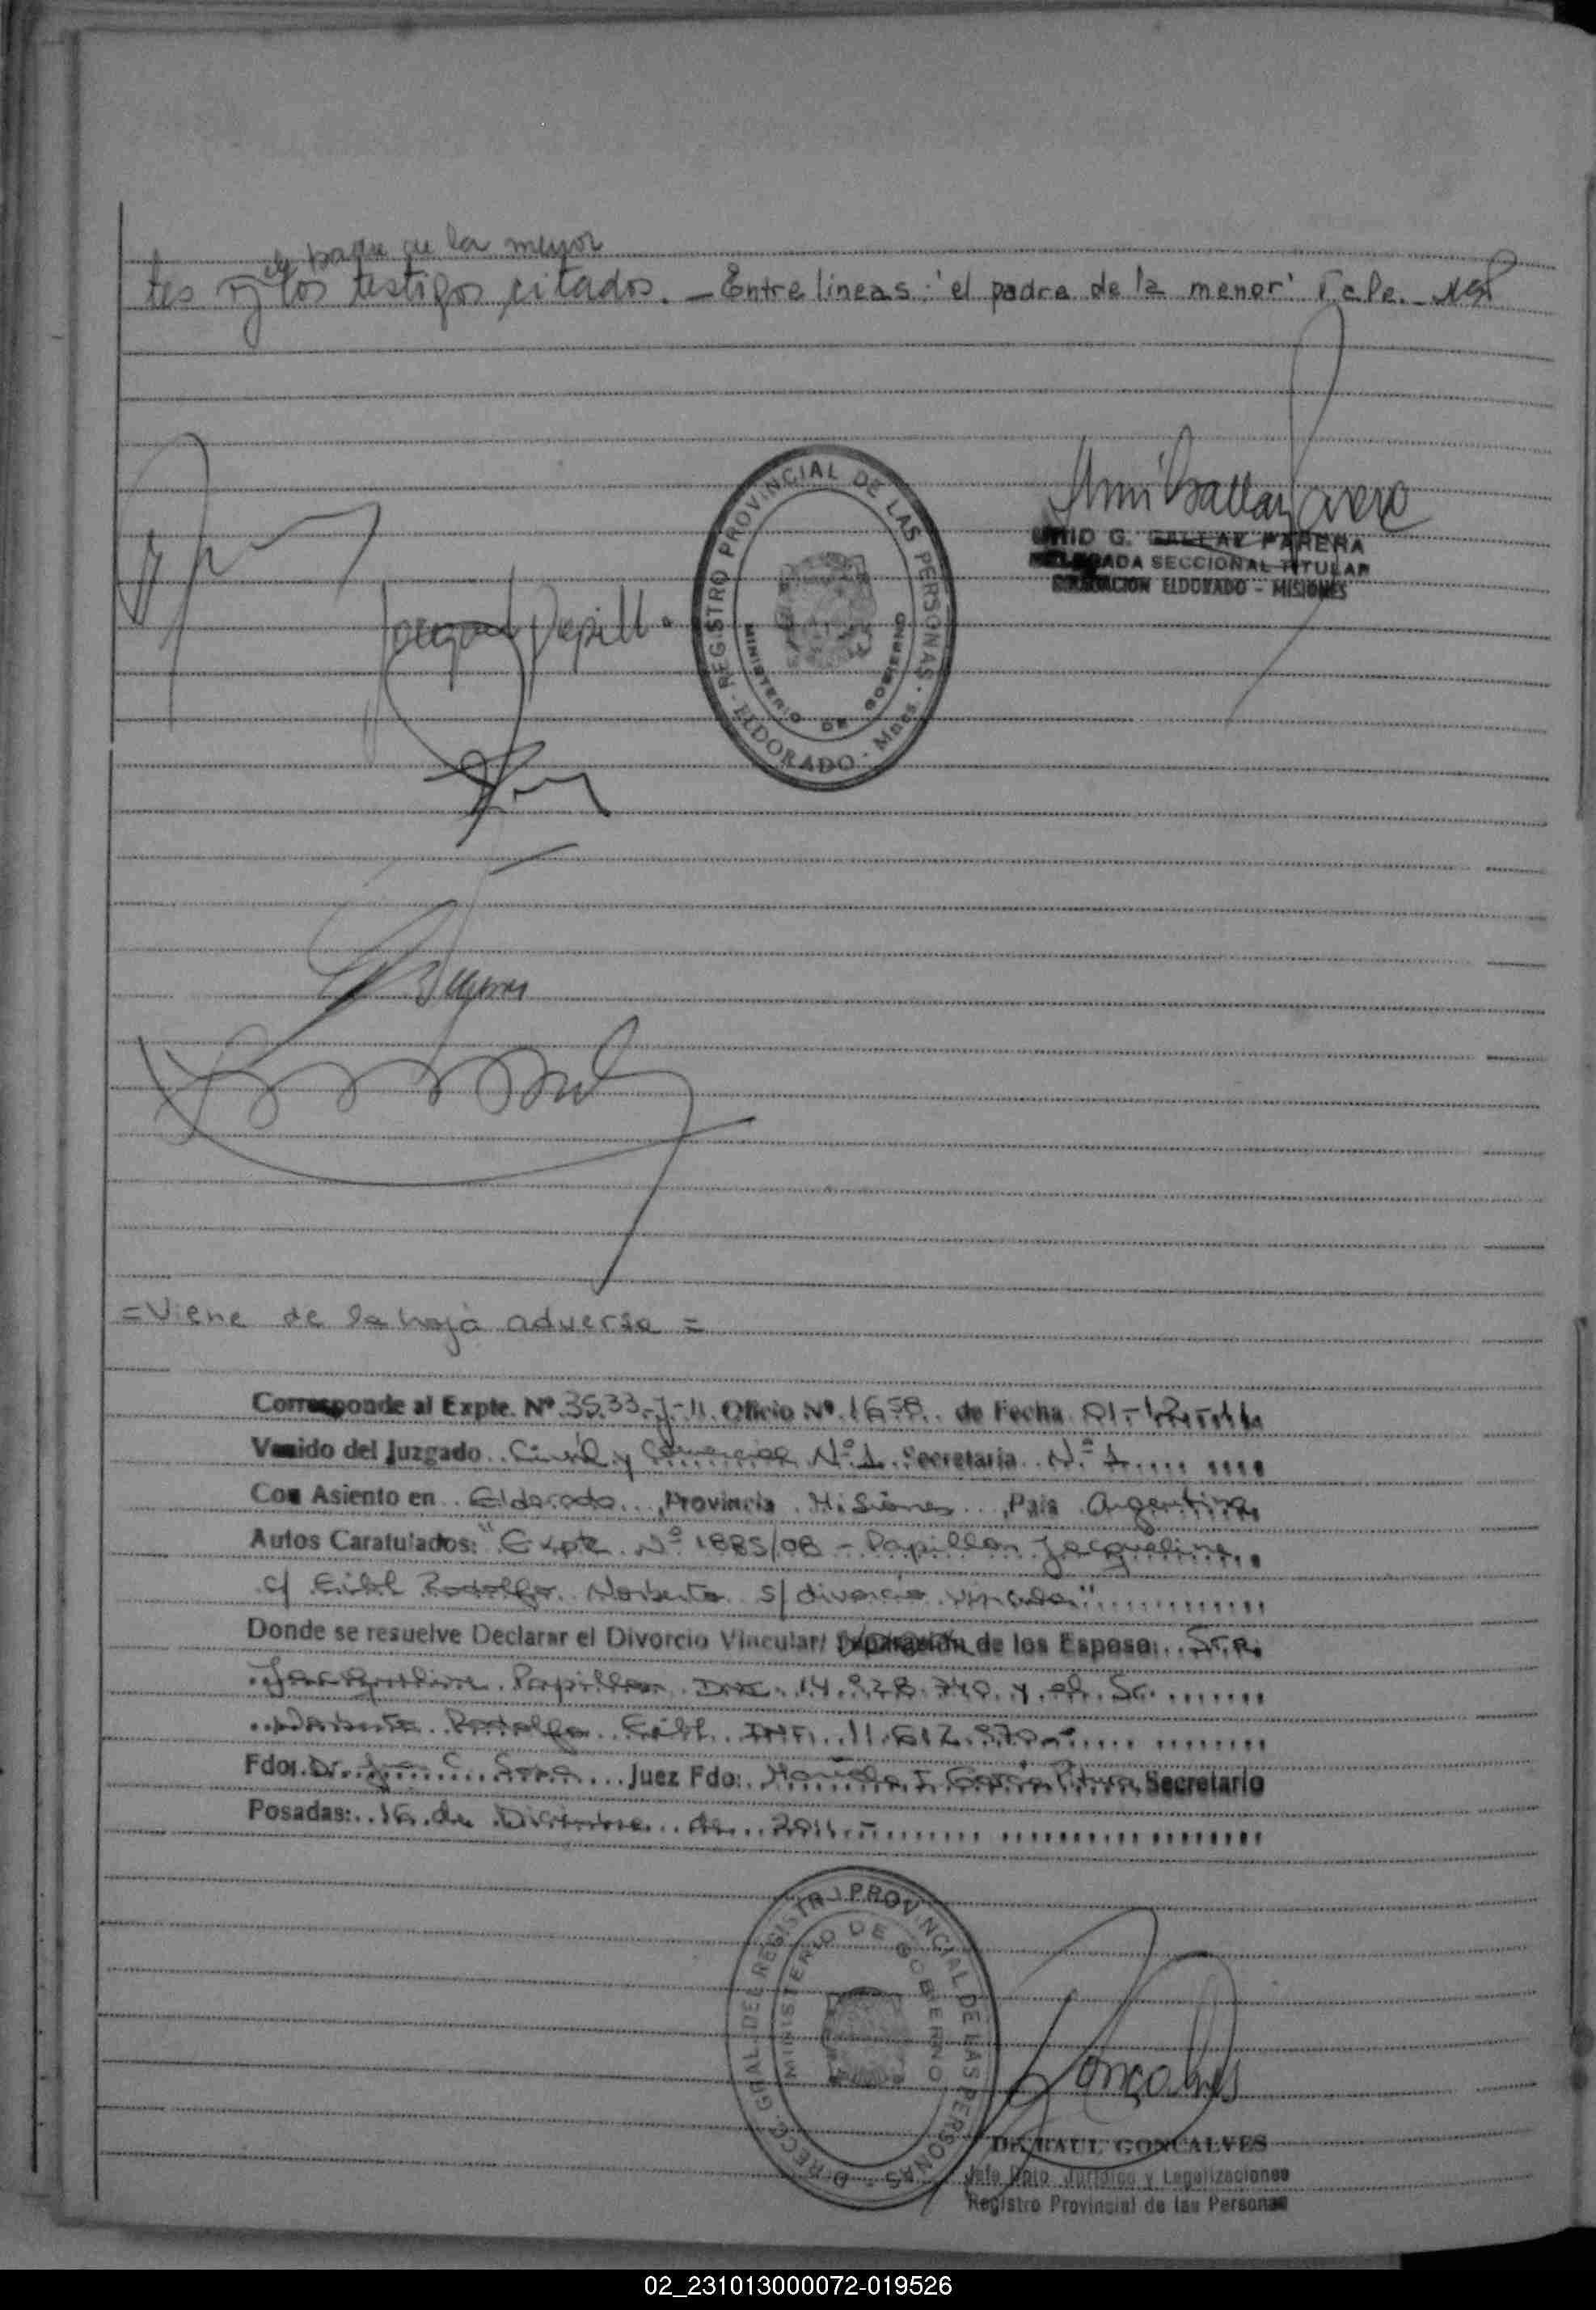 el padre de la menor
tes y los testigos citados. _ Entre lineas: 'el padre de la menor'
REGISTRO PROVINCIAL DE LAS PERSONAS
MINISTERIO DE GOBIERNO
ELDORADO - Mnes.
G. GALLAY PARERA
DELEGADA SECCIONAL TITULAR
ELDORADO - MISIONES
= Viene de la hoja adversa =
Corresponde al Expte. Nº 3533-J-11 Oficio Nº 1658 de Fecha 01-12-11
Venido del Juzgado Civil y Comercial Nº 1 Secretaria Nº 1
Con Asiento en Eldorado, Provincia Misiones, Pais Argentina
Autos Caratulados: "Expte Nº 1885/08 - Papillon Jacqueline
c/ Eibl Rodolfo Norberto s/ divorcio vincular"
Donde se resuelve Declarar el Divorcio Vincular/ Separación de los Esposo: Sra.
Jacqueline Papillon 14.928.740 y el Sr.
Norberto Rodolfo Eibl DNI 11.612.970
Fdo: Dr. Juez Fdo: Secretario
Posadas: 16 de Diciembre de 2011
DIRECC. GRAL. DEL REGISTRO PROVINCIAL DE LAS PERSONAS
MINISTERIO DE GOBIERNO
Goncalves
DR. RAUL GONCALVES
Jefe Dpto. Jurídico y Legalizaciones
Registro Provincial de las Personas
02_231013000072-019526